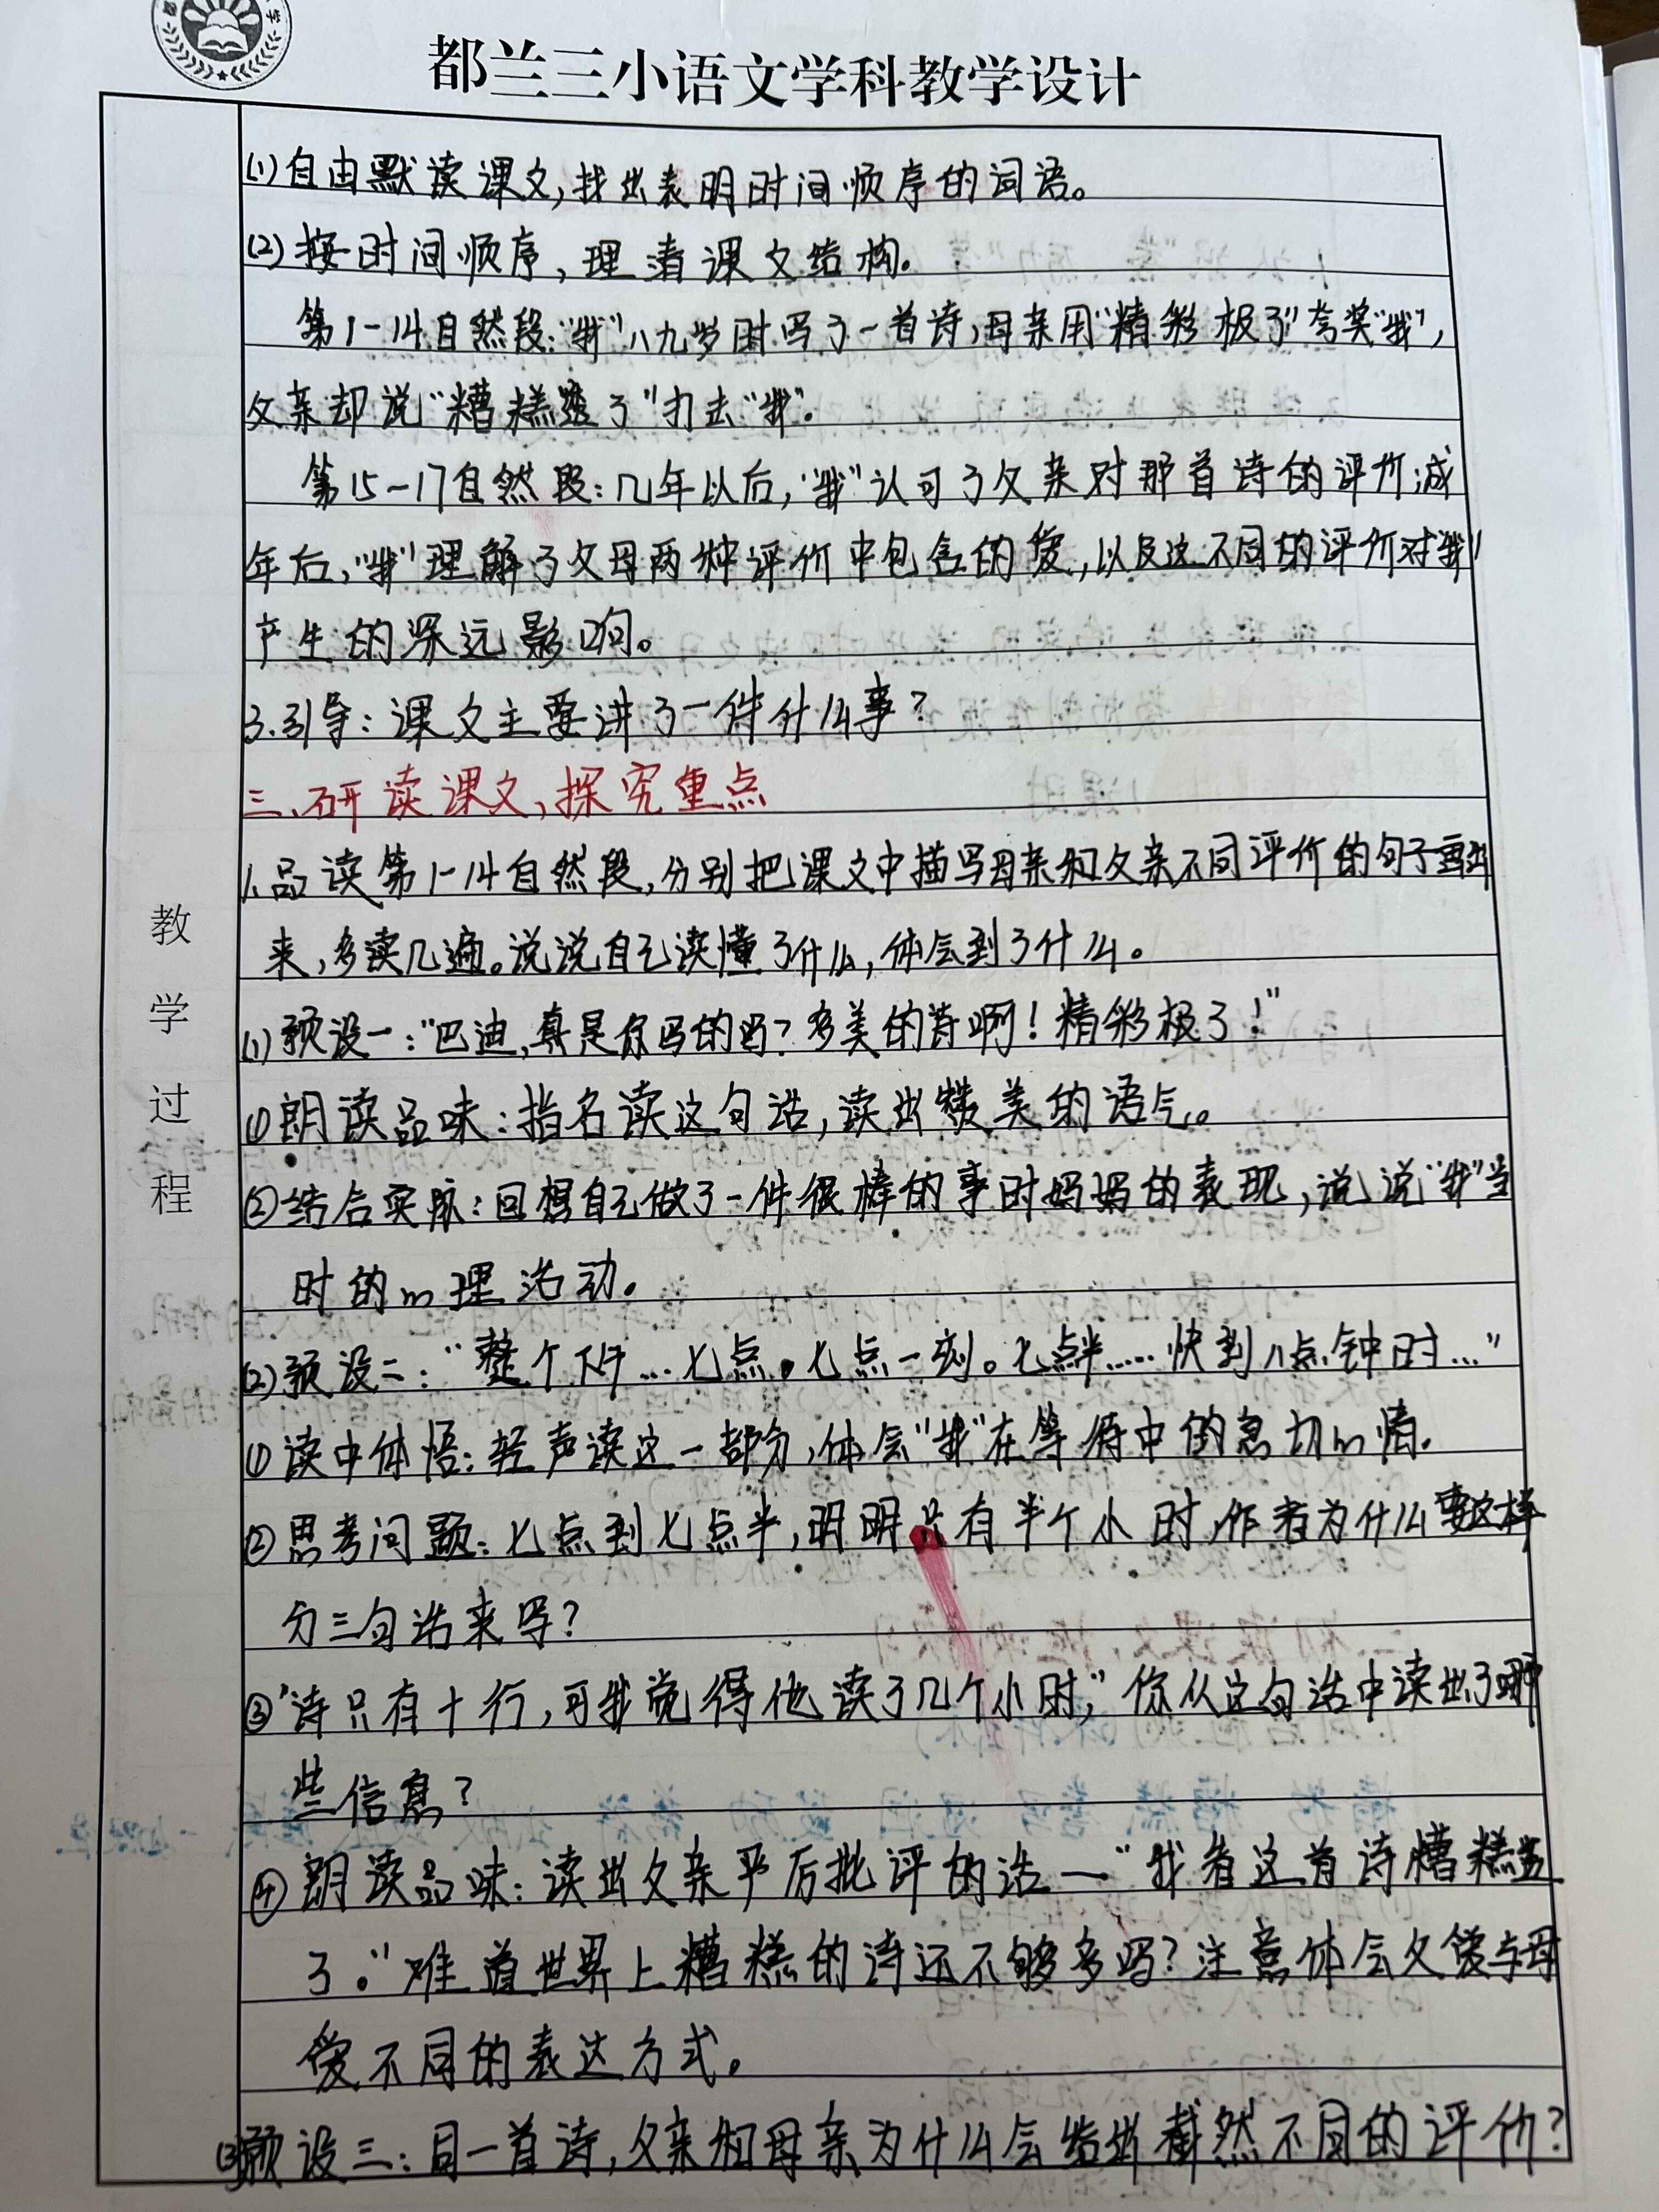 都兰三小语文学科教学设计
(1)自由默读课文,找出表明时间顺序的词语。
(2)按时间顺序,理清课文结构。
第1-14自然段:“我”八九岁时写了一首诗,母亲用“精彩极了”夸奖“我”,
父亲却说“糟糕透了”打击“我”.
第15~17自然段:几年以后,“我”认可了父亲对那首诗的评价;成
年后,“我”理解了父母两种评价中包含的爱,以及这不同的评价对“我”
产生的深远影响。
3.引导:课文主要讲了一件什么事?
三、研读课文,探究重点
1.品读第1-14自然段,分别把课文中描写母亲和父亲不同评价的句子画出
来,多读几遍。说说自己读懂了什么,体会到了什么。
(1)预设一:“巴迪,真是你写的吗?多美的诗啊!精彩极了!”
①朗读品味:指名读这句话,读出赞美的语气。
②结合实际:回想自己做了一件很棒的事时妈妈的表现,说说“我”当
时的心理活动.
(2)预设二:“整个下午...七点。七点一刻。七点半.....快到八点钟时...”
①读中体悟:轻声读这一部分,体会“我”在等待中的急切心情.
②思考问题:七点到七点半,明明只有半个小时,作者为什么要这样
分三句话来写?
③“诗只有十行,可我觉得他读了几个小时,”你从这句话中读出了哪
些信息?
④朗读品味:读出父亲严厉批评的话—“我看这首诗糟糕透
了。”难道世界上糟糕的诗还不够多吗?注意体会父爱与母
爱不同的表达方式.
(3)预设三:同一首诗,父亲和母亲为什么会给出截然不同的评价?
教
学
过
程